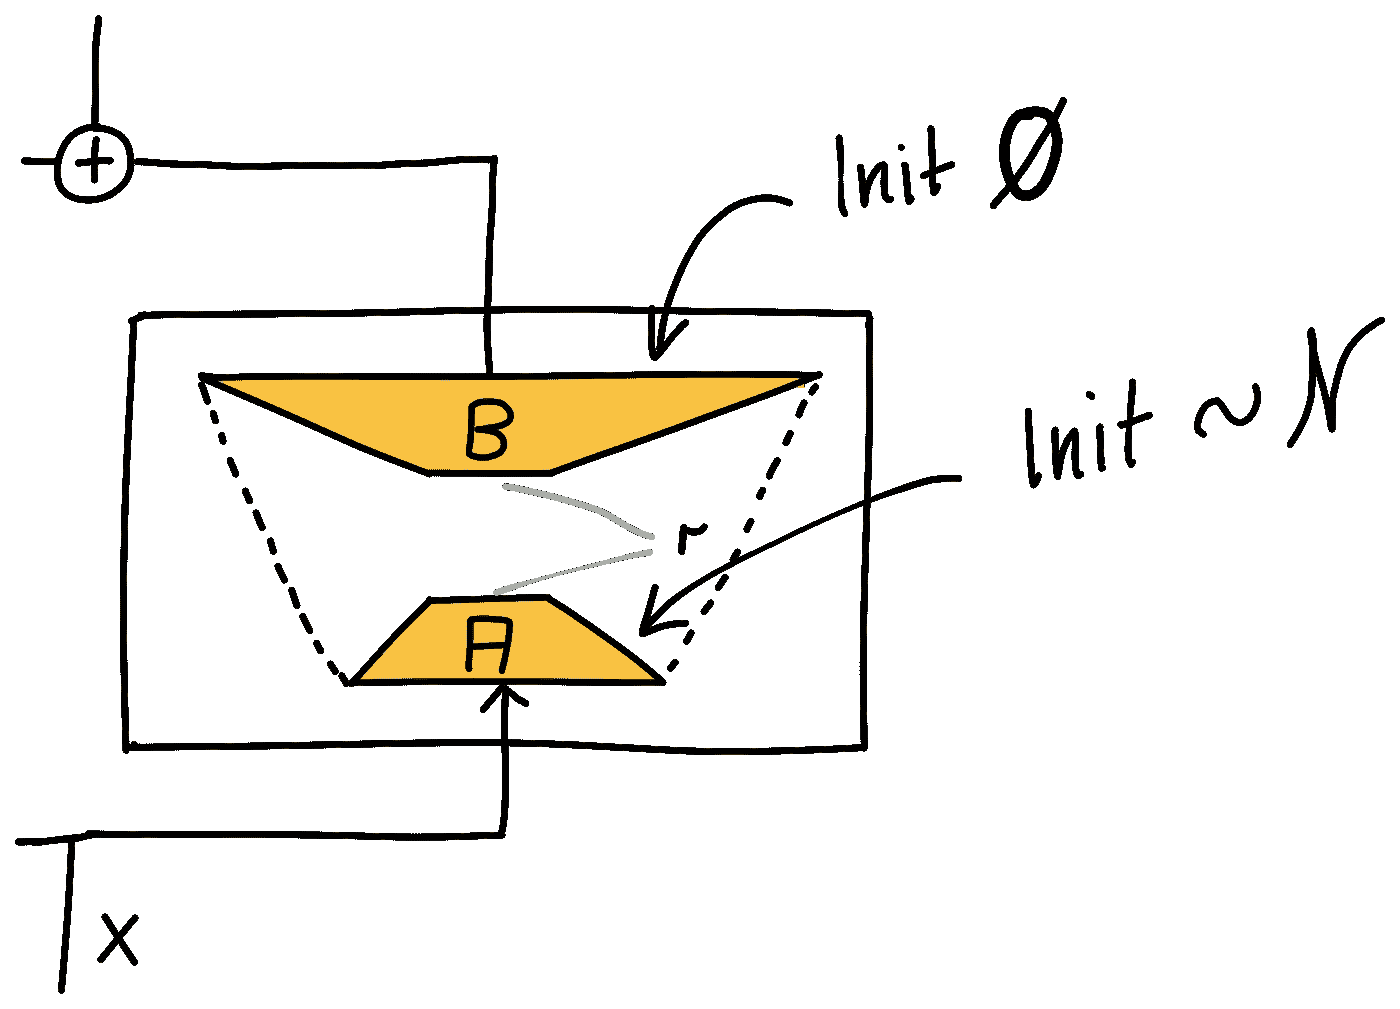 +
Init Ø
B
Init ~ N
r
A
x